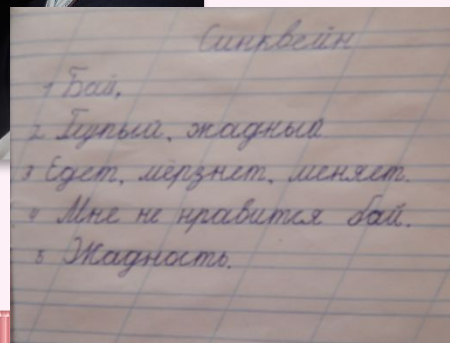 Синквейн
1 Бай.
2 Глупый, жадный
3 Едет, мёрзнет, меняет.
4 Мне не нравится бай.
5 Жадность.